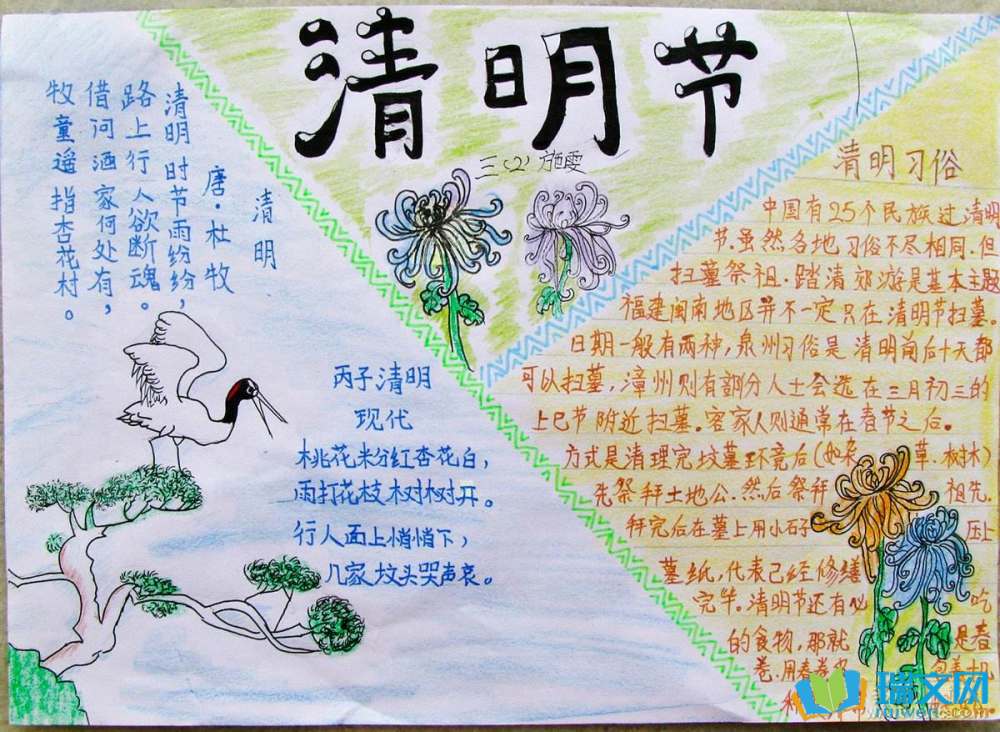 清明节
三(2) 施雯
清明
唐·杜牧
清明时节雨纷纷，
路上行人欲断魂。
借问酒家何处有，
牧童遥指杏花村。
丙子清明
现代
桃花粉红杏花白，
雨打花枝树树开。
行人面上悄悄下，
几家坟头哭声哀。
清明习俗
中国有25个民族过清明
节.虽然各地习俗不尽相同.但
扫墓祭祖.踏清郊游是基本主题
福建闽南地区并不一定只在清明节扫墓。
日期一般有两种，泉州习俗是清明前后十天都
可以扫墓，漳州则有部分人士会选在三月初三的
上巳节附近扫墓。客家人则通常在春节之后。
方式是清理完坟墓环境后(如杂草.树木)
先祭拜土地公.然后祭拜祖先.
拜完后在墓上用小石子压上
墓纸，代表已经修缮
完毕。清明节还有必吃
的食物，那就是春
卷.用春卷
瑞文网